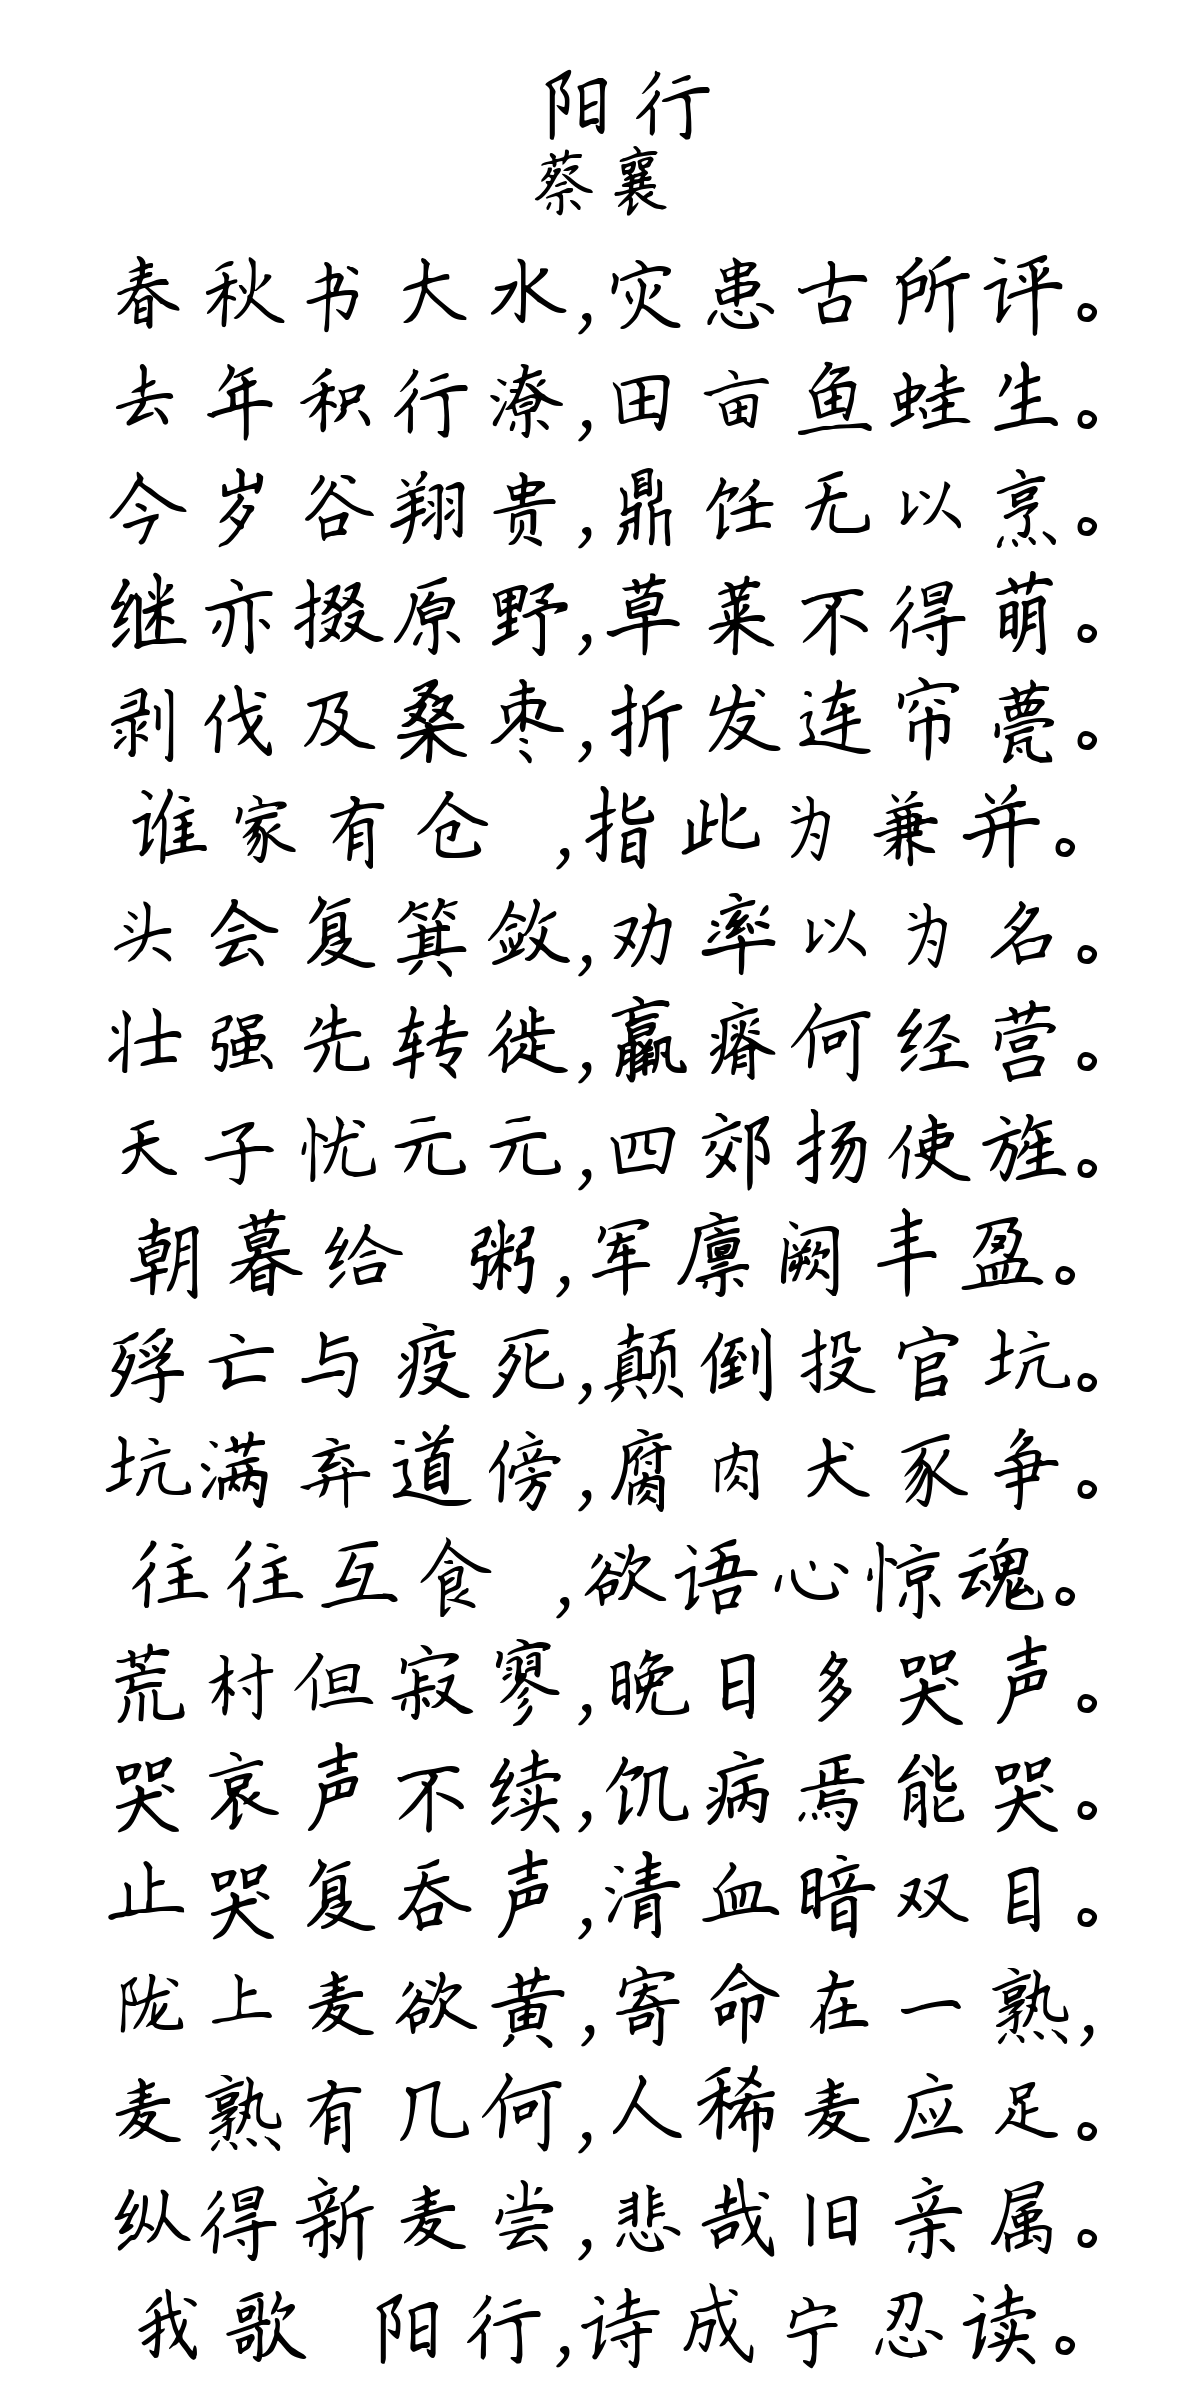 阳行
蔡襄
春秋书大水,灾患古所评。
去年积行潦,田亩鱼蛙生。
今岁谷翔贵,鼎饪无以烹。
继亦掇原野,草莱不得萌。
剥伐及桑枣,折发连帘甍。
谁家有仓 ,指此为兼并。
头会复箕敛,劝率以为名。
壮强先转徙,羸瘠何经营。
天子忧元元,四郊扬使旌。
朝暮给 粥,军廪阙丰盈。
殍亡与疫死,颠倒投官坑。
坑满弃道傍,腐肉犬豕争。
往往互食 ,欲语心惊魂。
荒村但寂寥,晚日多哭声。
哭哀声不续,饥病焉能哭。
止哭复吞声,清血暗双目。
陇上麦欲黄,寄命在一熟,
麦熟有几何,人稀麦应足。
纵得新麦尝,悲哉旧亲属。
我歌 阳行,诗成宁忍读。